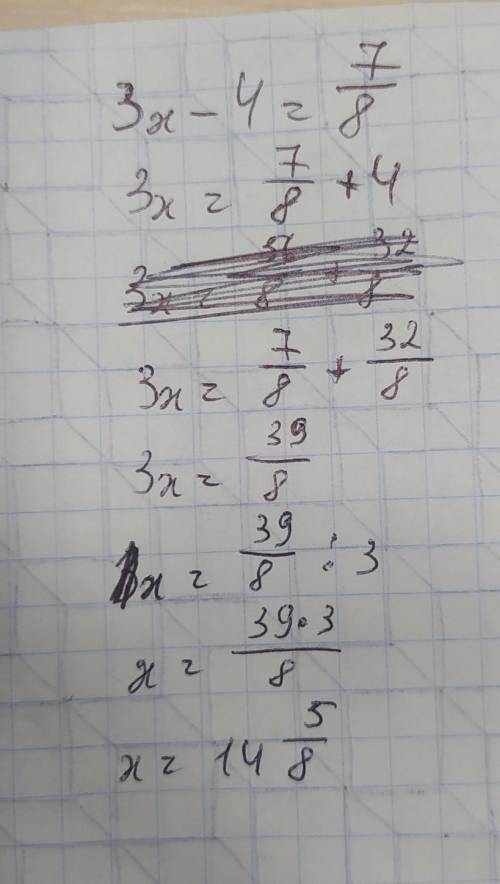 3x - 4 = 7/8
3x = 7/8 + 4
3x = 7/8 + 32/8
3x = 39/8
x = 39/8 : 3
x = 39·3/8
x = 14 5/8